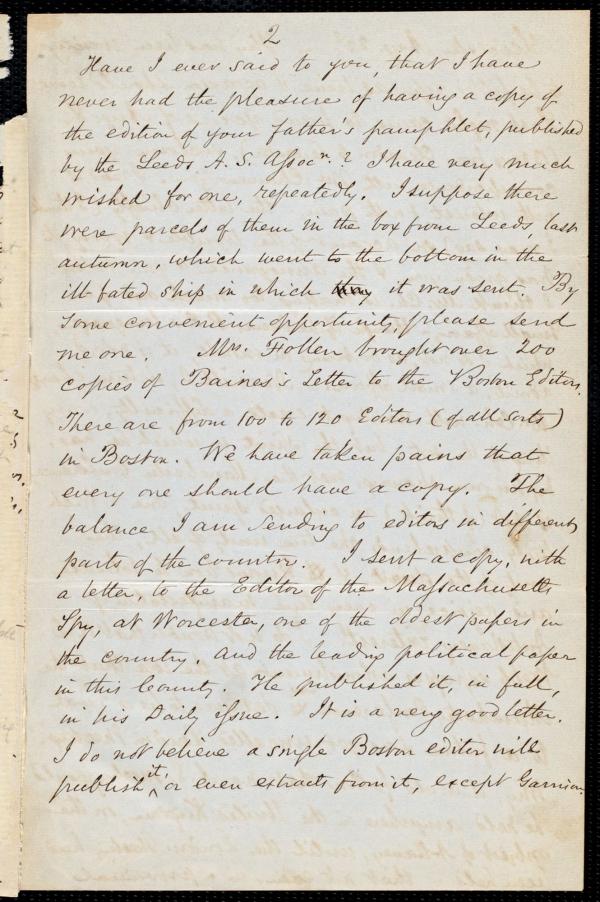 2
Have I ever said to you, that I have
never had the pleasure of having a copy of
the edition of your father's pamphlet, published
by the Leeds A. S. Assocn.? I have very much
wished for one, repeatedly. I suppose there
were parcels of them in the box from Leeds, last
autumn, which went to the bottom in the
ill-fated ship in which it was sent. By
some convenient opportunity, please send
me one. Mrs. Follen brought over 200
copies of Baines's Letter to the Boston Editors.
There are from 100 to 120 Editors (of all sorts)
in Boston. We have taken pains that
every one should have a copy. The
balance I am sending to editors in different
parts of the country. I sent a copy, with
a letter, to the Editor of the Massachusetts
Spy, at Worcester, one of the oldest papers in
the country, and the leading political paper
in this County. He published it, in full,
in his Daily issue. It is a very good letter.
I do not believe a single Boston editor will
publish it, or even extracts from it, except Garrison.